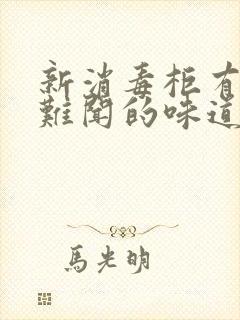 新消毒柜有
難聞的味道
馬光明